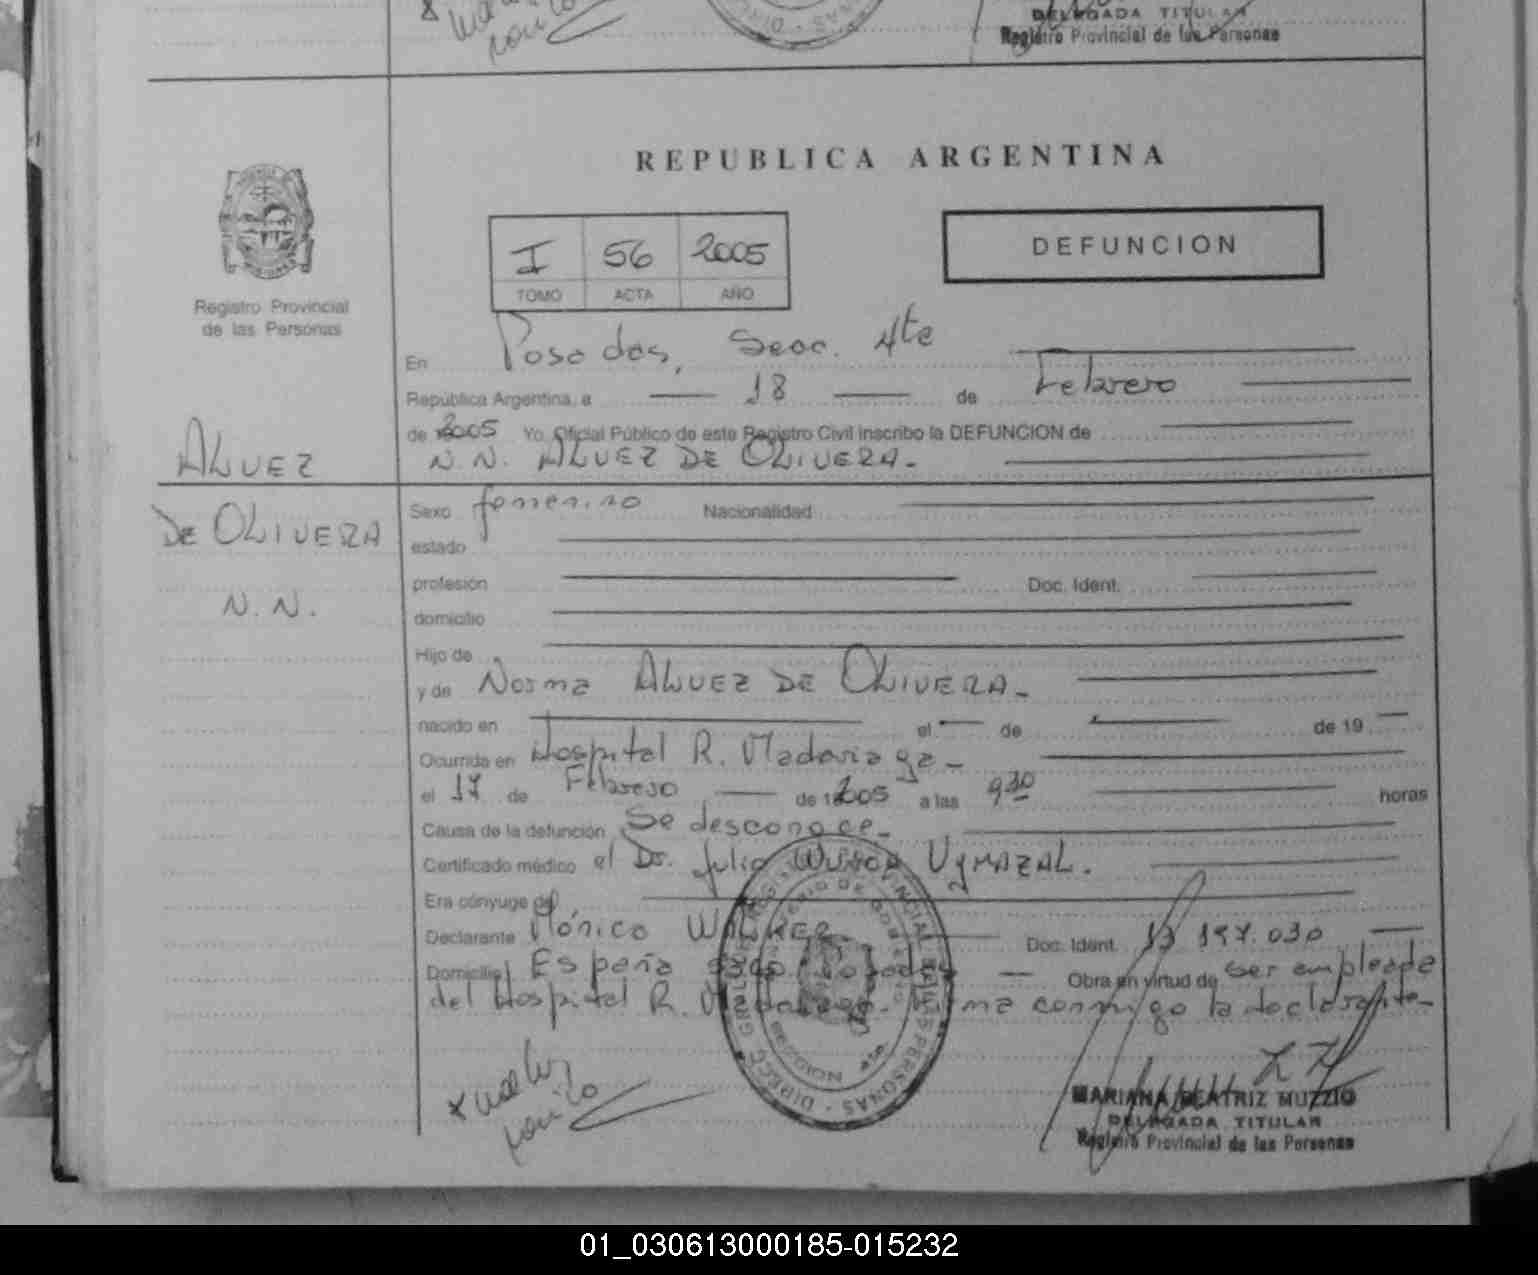 DELEGADA TITULAR
Registro Provincial de las Personas
REPUBLICA ARGENTINA
I 56 2005
TOMO ACTA AÑO
DEFUNCION
Registro Provincial
de las Personas
En Posadas, Secc. 4te
República Argentina, a 18 de Febrero
de 2005 Yo, Oficial Público de este Registro Civil inscribo la DEFUNCION de
N.N. ALVEZ DE OLIVERA.
ALVEZ
DE OLIVERA
N. N.
Sexo femenino Nacionalidad
estado
profesión Doc. Ident.
domicilio
Hijo de
y de Norma ALVEZ DE OLIVERA.
nacido en el de de 19
Ocurrida en Hospital R. Madariaga
el 17 de Febrero de 2005 a las 9 30 horas
Causa de la defunción Se desconoce
Certificado médico el Dr. Julio VYMAZAL.
Era cónyuge de
Declarante Mónico WALKER Doc. Ident. 13.197.030
Domicilio España Posadas Obra en virtud de ser empleade
del Hospital R. Madariaga. Firma conmigo la declarante
MARIANA BEATRIZ MUZZIO
DELEGADA TITULAR
Registro Provincial de las Personas
01_030613000185-015232